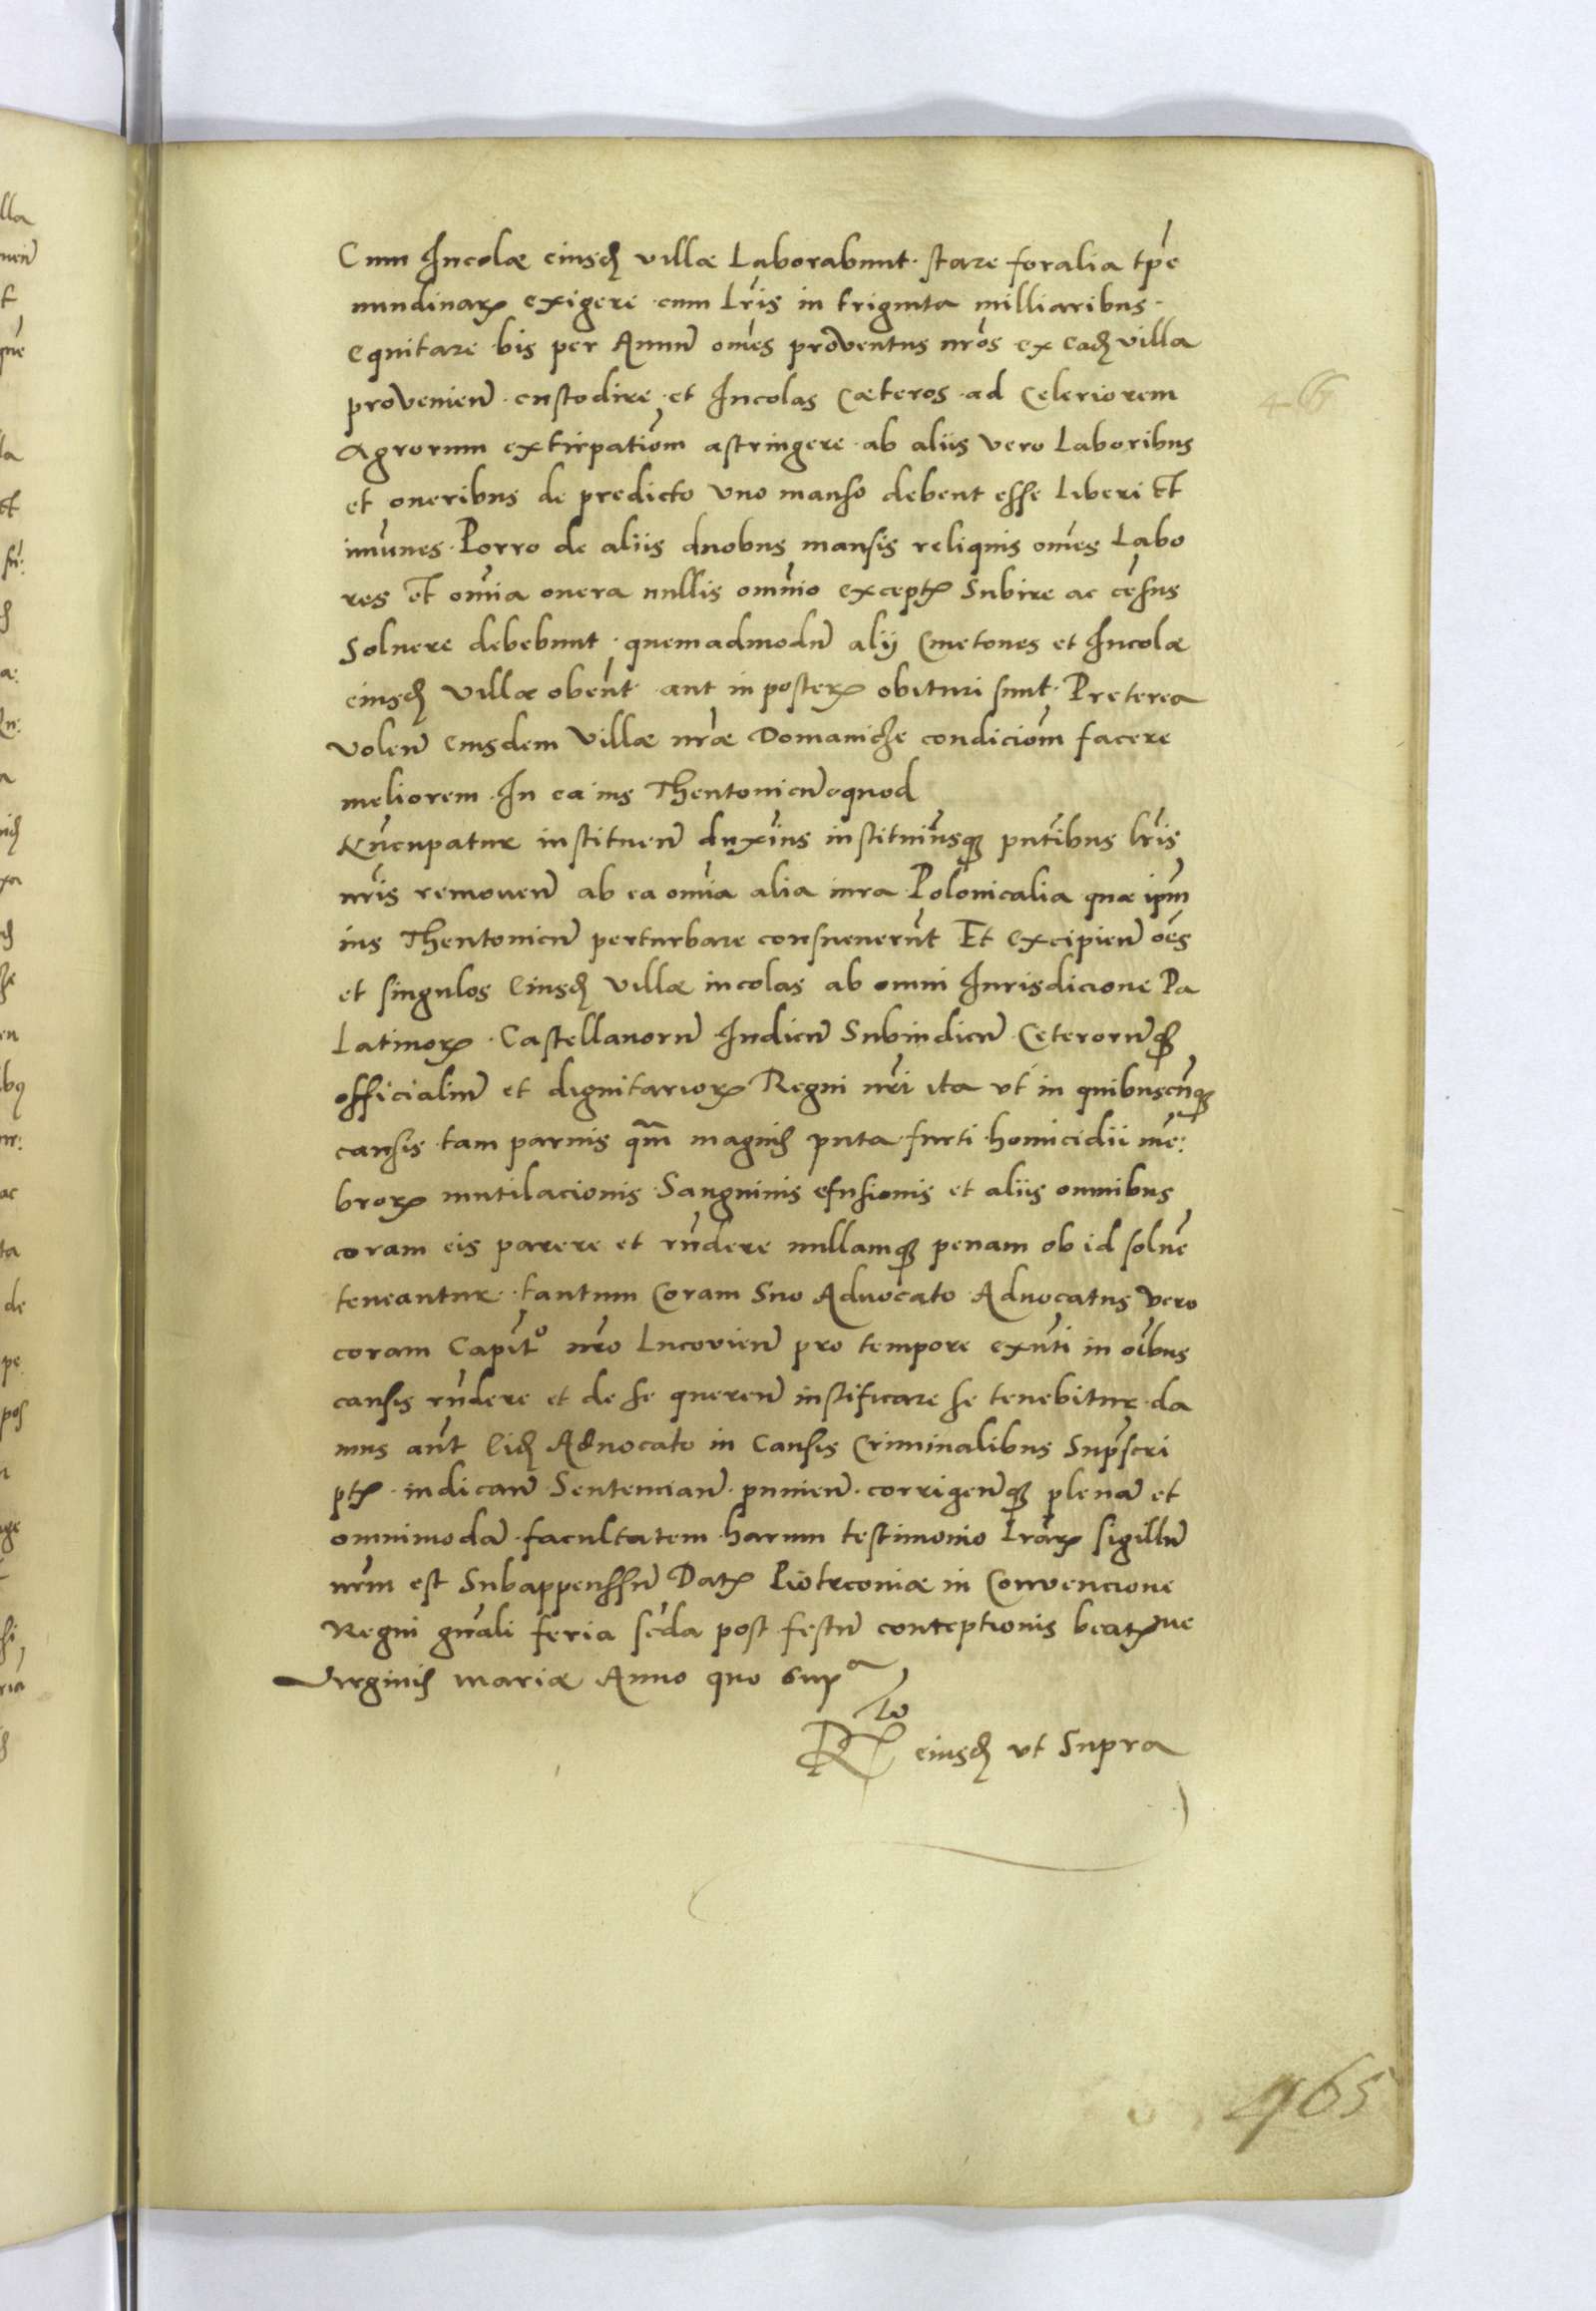 Cum Incolæ eiusdꝫ villæ Laborabunt. stare foralia tp̄e
nundinarꝝ exigere cum lr̄is in triginta milliaribus.
equitare bis per Annū om̄es proventus nr̄os ex eadꝫ villa
provenien̄. custodire et Incolas cæteros ad celeriorem
Agrorum extirpatiōm astringere ab aliis vero Laboribus
et oneribus de predicto uno manso debent esse liberi Et
imūnes. Porro de aliis duobus mansis reliquis om̄es Labo
res Et om̄ia onera nullis omnio exceptꝭ Subire ac cēsus
Soluere debebunt. quemadmodū alij Cmetones et Incolæ
eiusdꝫ villæ obeūt. aut in posterꝝ obituri sunt. Preterea
volen̄ eiusdem villæ nr̄æ Domaniche condiciōm facere
meliorem. In ea ius Theutonicū quod
Nūcupatur instituen̄ duxim̄us instituim̄usqꝫ pn̄tibus lr̄is
nr̄is remouen̄ ab ea om̄ia alia iura Polonicalia quæ ipm̄
ius Theutonicū perturbare consueuerūt Et excipien̄ oēs
et singulos eiusdꝫ villæ incolas ab omni Iurisdicione Pa
Latinorꝝ. Castellanorū Iudicū Subiudicū Ceterorūqꝫ
officialiū et dignitariorꝝ Regni nr̄i ita ut in quibuscūqꝫ
causis tam paruis qm̄ magnis puta furti homicidii mē:
brorꝝ mutilacionis Sanguinis efusionis et aliis omnibus
coram eis parere et rn̄dere nullamqꝫ penam ob id soluē
teneantur. tantum coram Suo Aduocato Aduocatus vero
coram Capit̄o nr̄o Lucovien̄ pro tempore exn̄ti in oībus
causis rn̄dere et de se queren̄ iustificare se tenebitur. da
mus aūt eidꝫ Aduocato in causis criminalibus Supscri
ptꝭ. iudican̄ Sentencian̄. punien̄. corrigen̄qꝫ plenā et
omnimodā facultatem harum testimonio lr̄arꝝ sigillū
nr̄m est Subappenssū Datꝭ Piotrconiæ in Convencione
Regni gn̄ali feria scd̄a post festū conceptionis beatꝭme
Virginis mariæ Anno quo supᵃ
Rᵗᵒ eiusdꝫ ut Supra
465